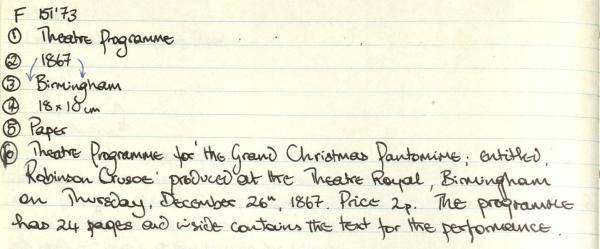 F 151'73
① Theatre Programme
② 1867
③ Birmingham
④ 18 x 10 cm
⑤ Paper
⑥ Theatre Programme for 'the Grand Christmas Pantomime; entitled,
Robinson Crusoe' produced at the Theatre Royal, Birmingham
on Thursday, December 26th, 1867. Price 2p. The programme
has 24 pages and inside contains the text for the performance.